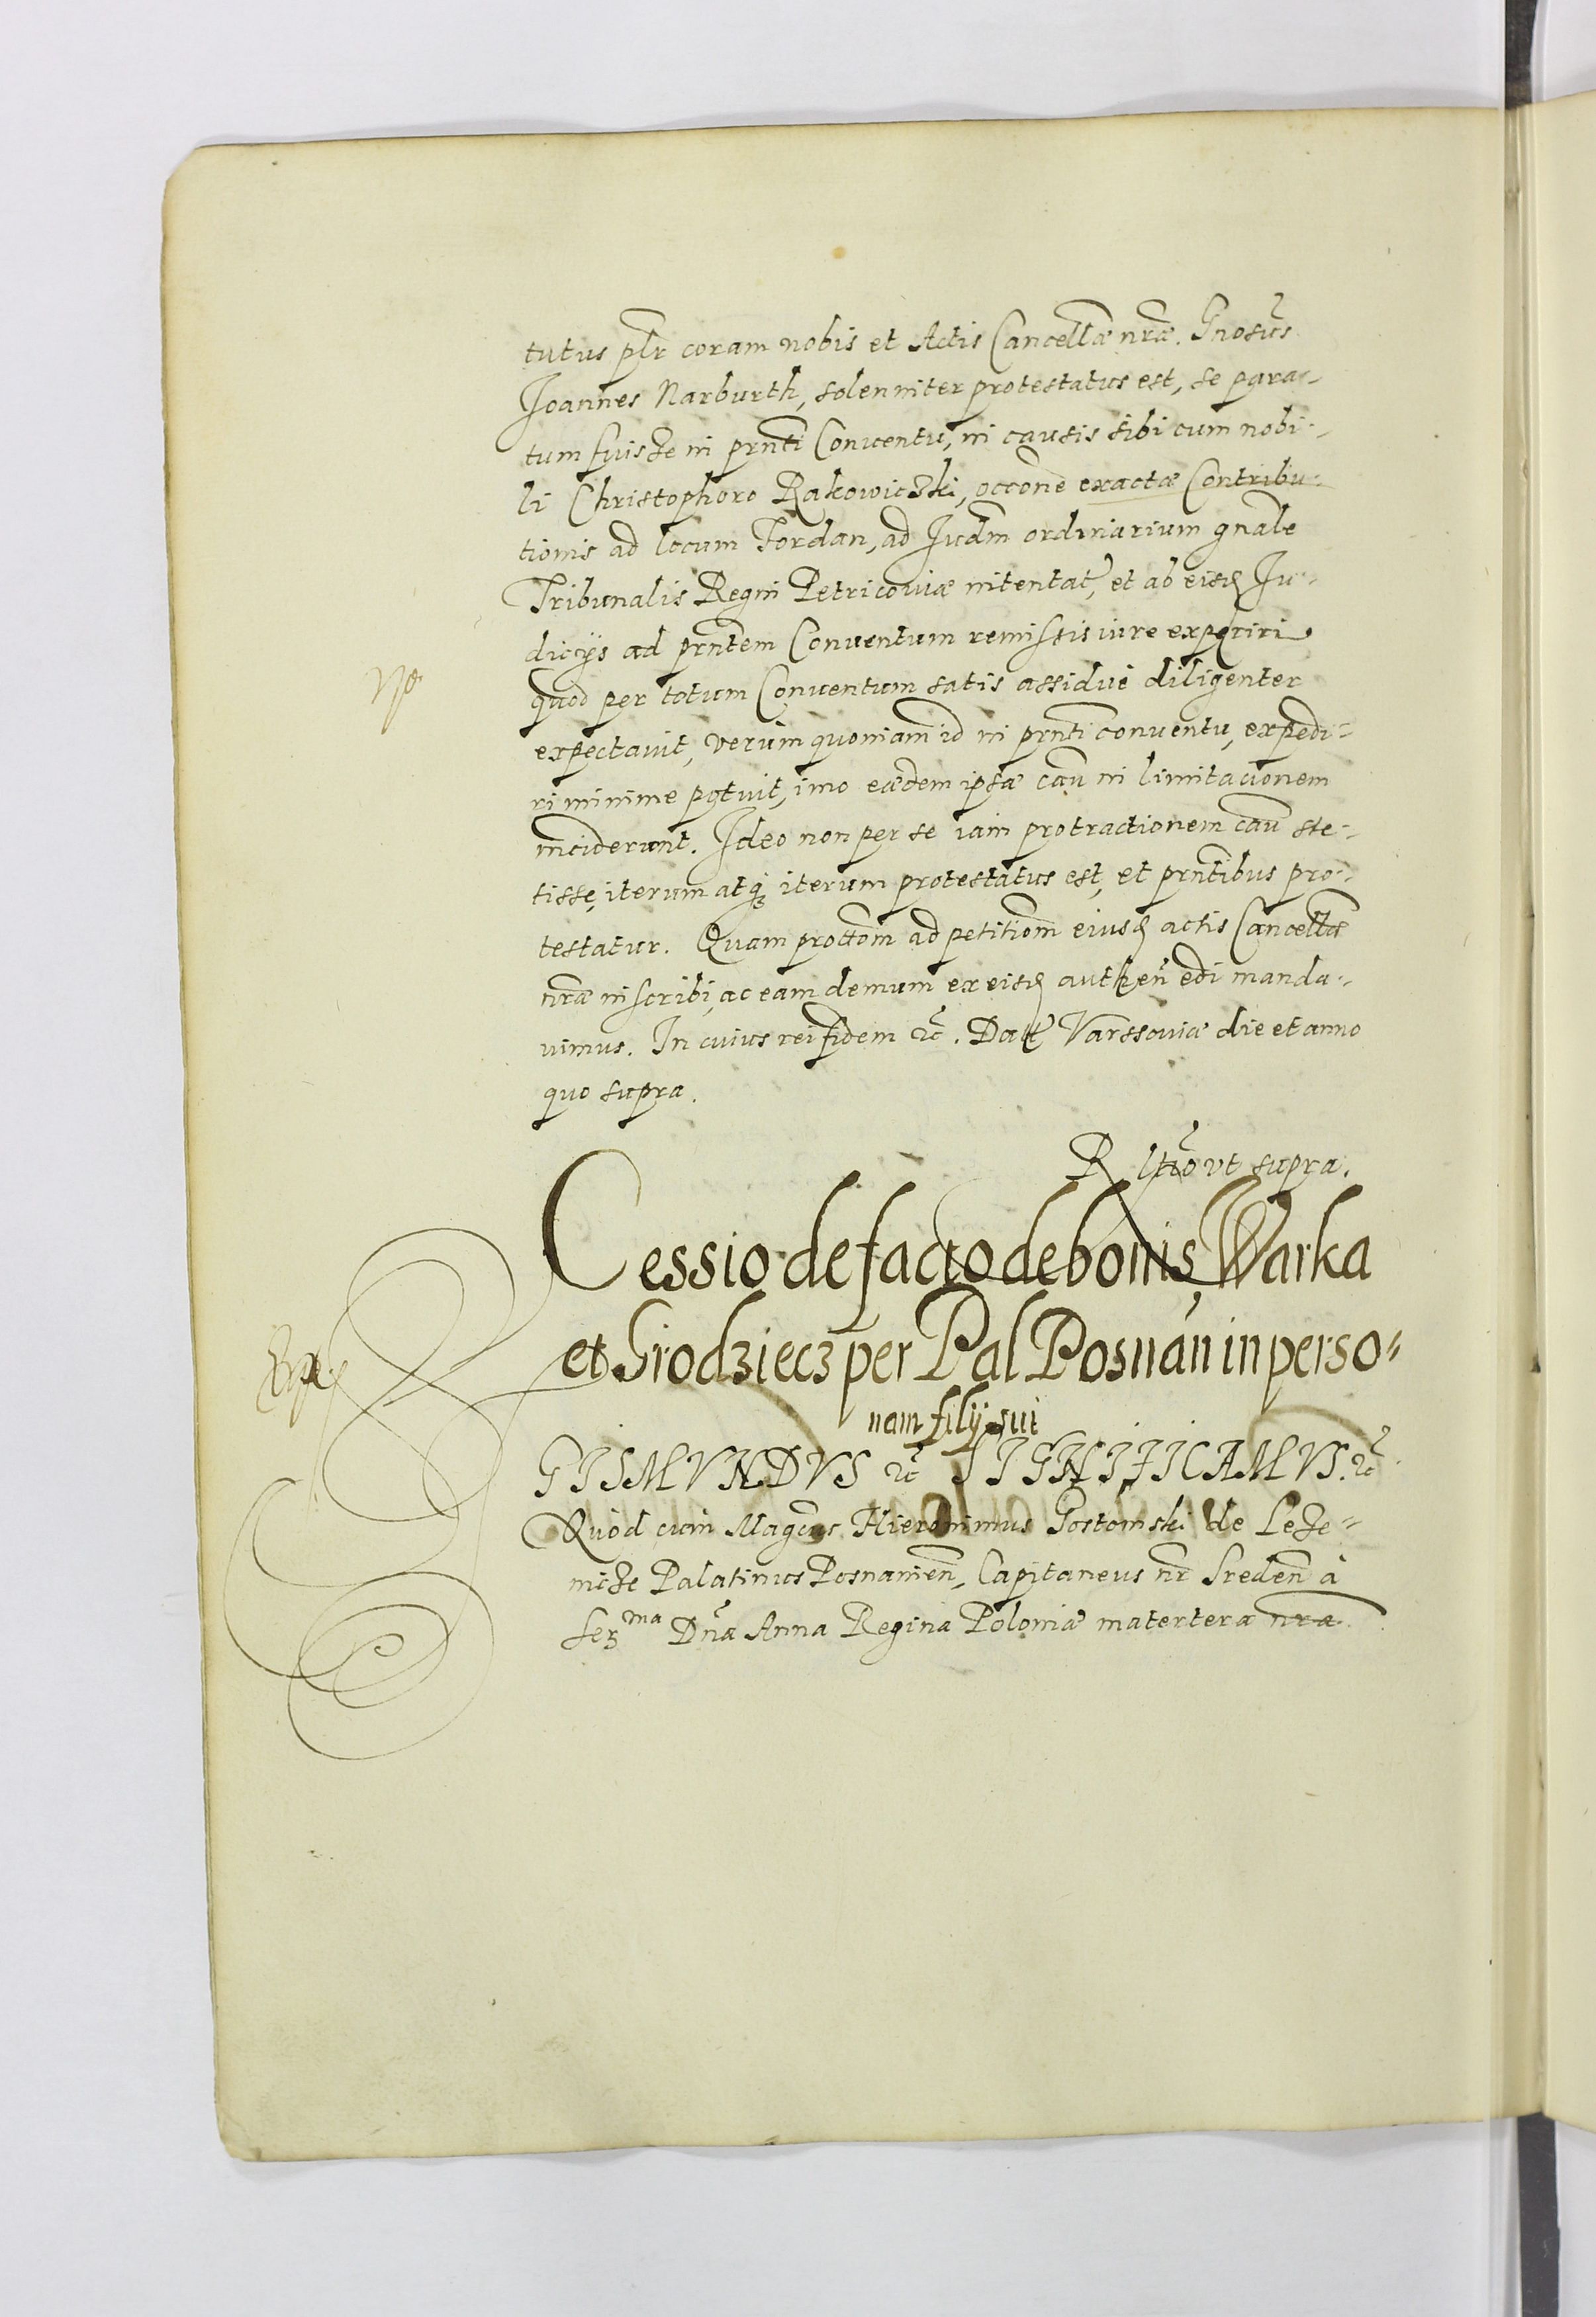 tutus plr coram nobis et Actis Cancellæ nræ. Gnosus
Joannes Narburth, solenniter protestatus est, se para-
tum fuisse in prnti Conventu, in causis sibi cum nobi-
li Christophoro Rakowiczki, occone exactæ Contribu-
tionis ad locum Fordan, ad Judm ordinarium gnale
Tribunalis Regni Petricoviæ intentat, et ab eisd Ju-
dicijs ad prntem Conventum remissis iure experiri
quod per totum Conventum satis assidue diligenter
expectavit, verum quoniam id in prnti conventu, expedi-
ri minime potuit, imo eædem ipsæ cau in limitacionem
inciderunt. Ideo non per se iam protractionem cau ste-
tisse, iterum atq iterum protestatus est, et prntibus pro-
testatur. Quam prottom ad petitiom eiusd actis Cancellæ
nræ inscribi, ac eam demum ex eisd authen edi manda-
vimus. In cuius rei fidem etc. Dat Varssoviæ die et anno
quo supra.
R ltio ut supra.
Cessio de facto de bonis Warka
et Grodziecz per Pal Posnan in perso-
nam filij sui
GISMVNDVS etc SIGNIFICAMVS. etc
Quod cum Magcus Hieronimus Gostomski de Leze-
nicze Palatinus Posnanien, Capitaneus nr Sreden à
Ser ma Dna Anna Regina Poloniæ matertera nra